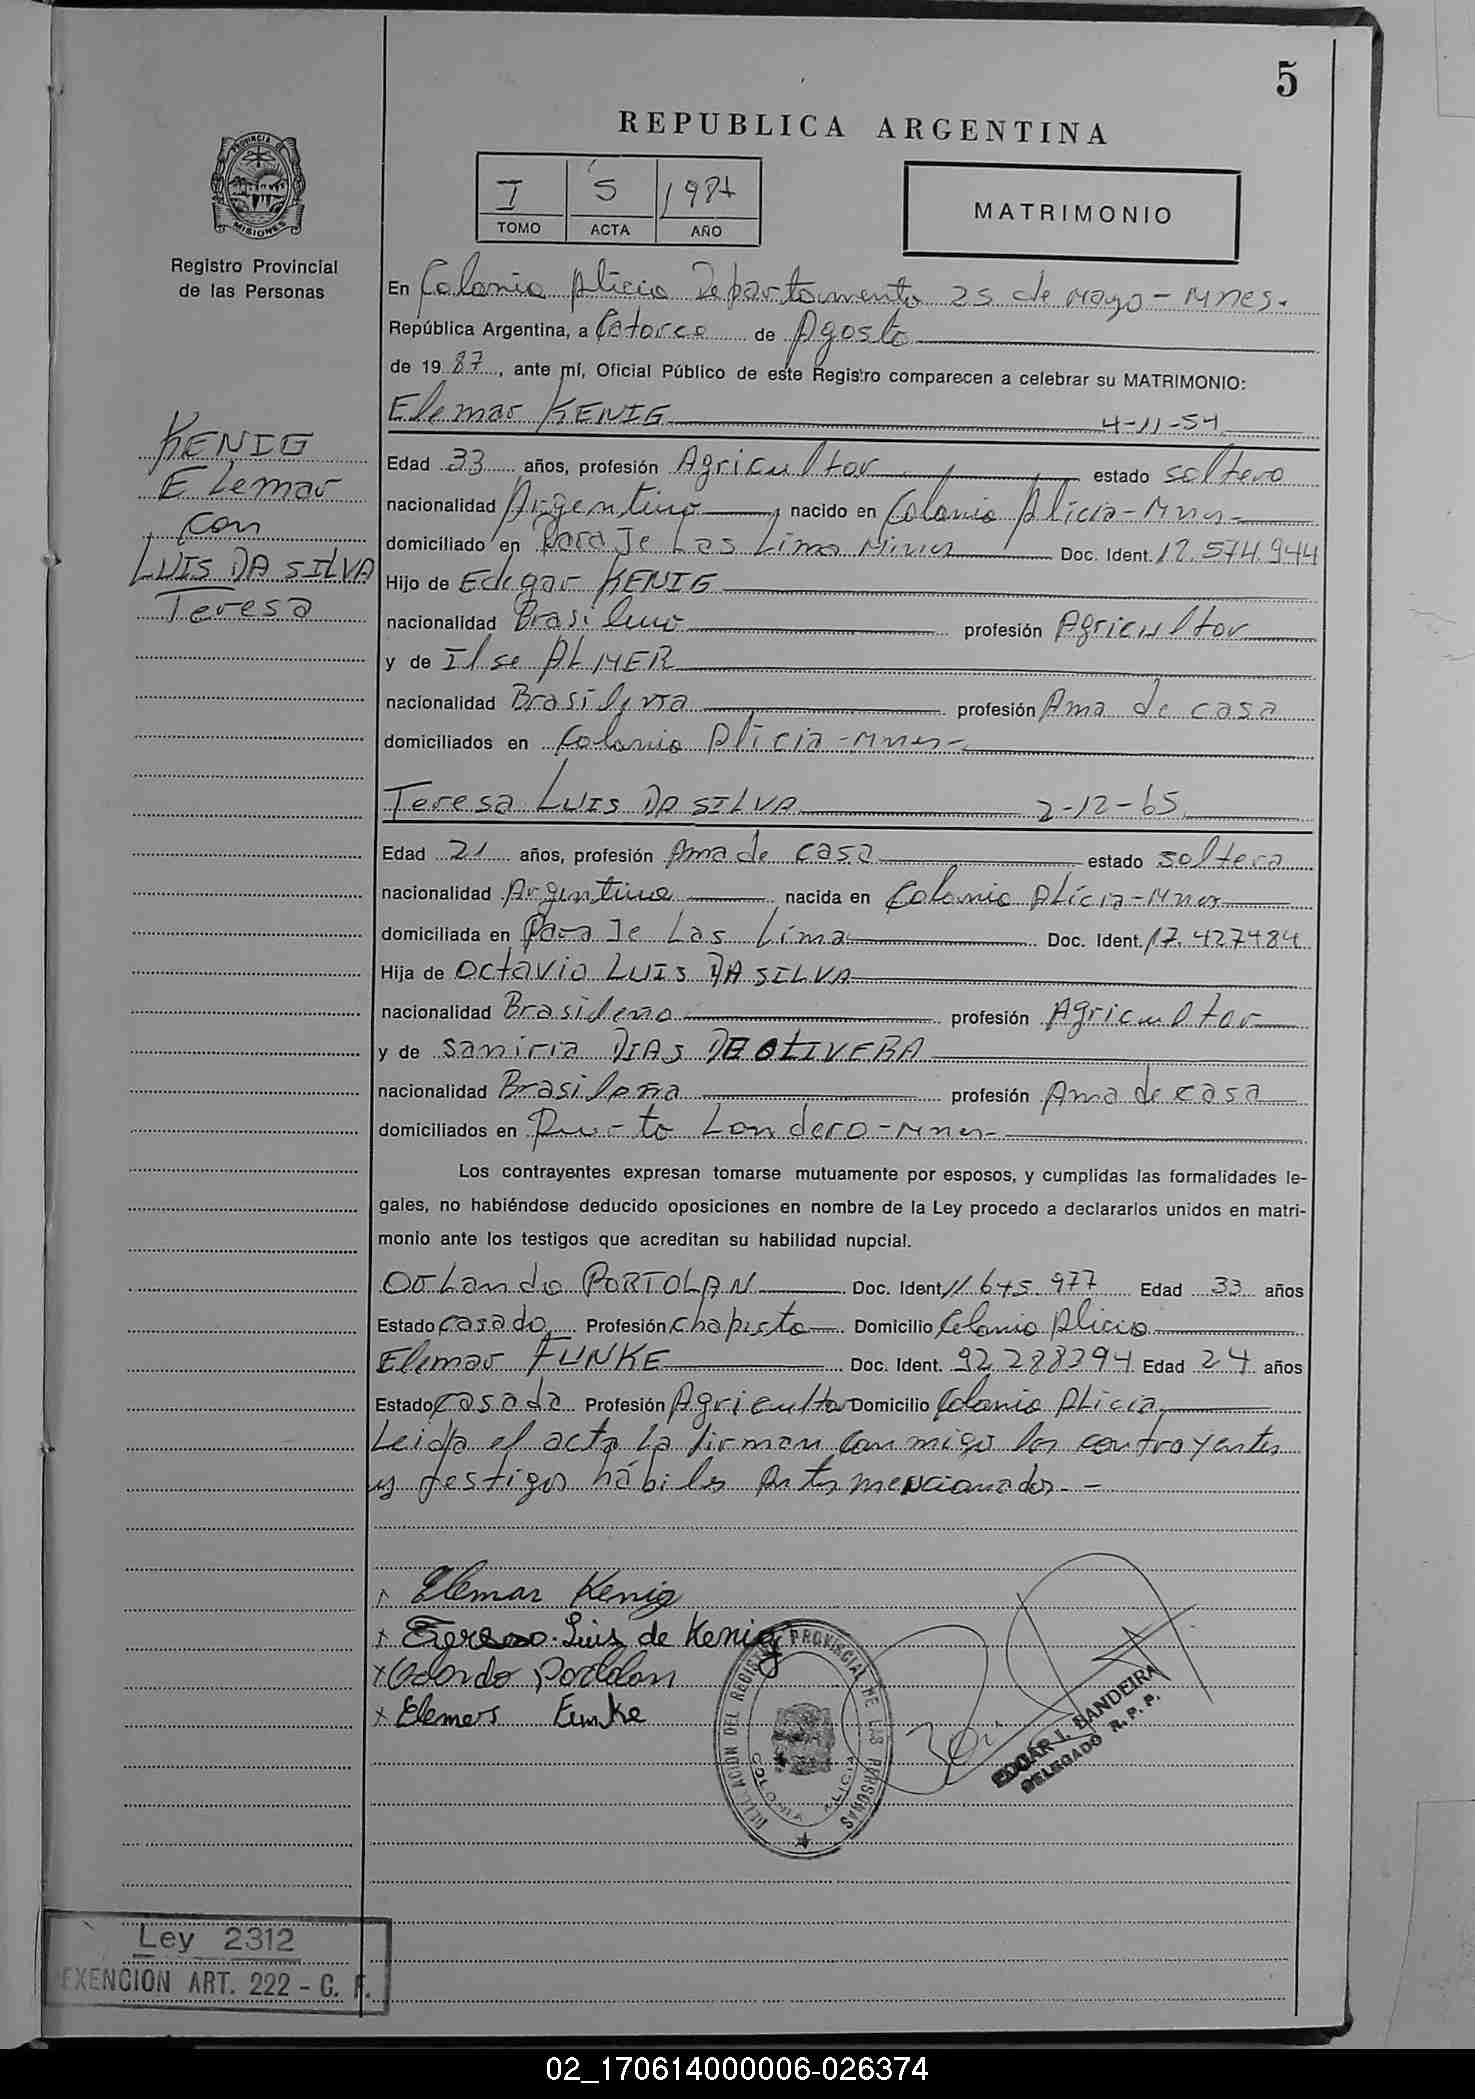 5
REPUBLICA ARGENTINA
I 5 1987
TOMO ACTA AÑO
MATRIMONIO
PROVINCIA DE
MISIONES
Registro Provincial
de las Personas
En Colonia Alicia Departamento 25 de Mayo - Mnes.
República Argentina, a Catorce de Agosto
de 1987, ante mí, Oficial Público de este Registro comparecen a celebrar su MATRIMONIO:
Elemar KENIG 4-11-54
KENIG
Elemar
con
LUIS DA SILVA
Teresa
Edad 33 años, profesión Agricultor estado soltero
nacionalidad Argentino nacido en Colonia Alicia - Mnes -
domiciliado en Paraje Las Lima Mnes Doc. Ident. 12.574.944
Hijo de Edegar KENIG
nacionalidad Brasileno profesión Agricultor
y de Ilse ALMER
nacionalidad Brasileña profesión Ama de casa
domiciliados en Colonia Alicia - Mnes -
Teresa LUIS DA SILVA 2-12-65
Edad 21 años, profesión Ama de casa estado soltera
nacionalidad Argentina nacida en Colonia Alicia - Mnes
domiciliada en Paraje Las Lima Doc. Ident. 17.427484
Hija de Octavio LUIS DA SILVA
nacionalidad Brasileno profesión Agricultor
y de Saniria DIAS DE OLIVERA
nacionalidad Brasileña profesión Ama de casa
domiciliados en Puerto Londero - Mnes -
Los contrayentes expresan tomarse mutuamente por esposos, y cumplidas las formalidades le-
gales, no habiéndose deducido oposiciones en nombre de la Ley procedo a declararlos unidos en matri-
monio ante los testigos que acreditan su habilidad nupcial.
Orlando PORTOLAN Doc. Ident 11.645.977 Edad 33 años
Estado casado Profesión chapista Domicilio Colonia Alicia
Elemar FUNKE Doc. Ident. 92 288394 Edad 24 años
Estado casada Profesión Agricultor Domicilio Colonia Alicia
Leida el acta la firman conmigo los contrayentes
y testigos hábiles antes mencionados. -
Elemar Kenig
x Teresa Luis de Kenig
x Orlando Portolan
x Elemar Funke
DELEGACION DEL REGISTRO PROVINCIAL DE LAS PERSONAS
COLONIA ALICIA
EDGAR I. BANDEIRA
DELEGADO R. P. P.
Ley 2312
EXENCION ART. 222 - C. F.
02_170614000006-026374